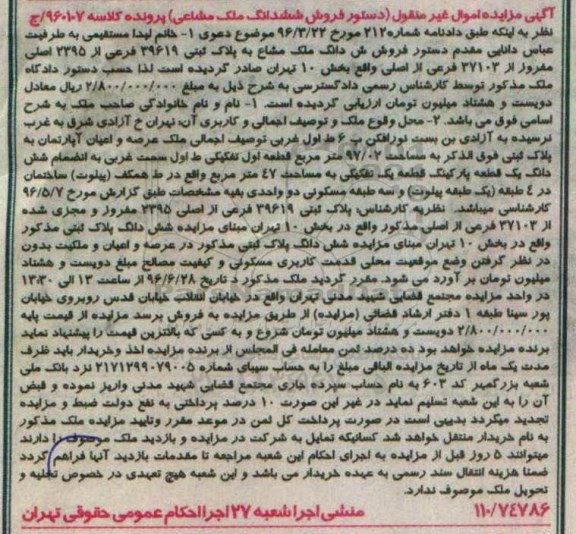 آگهی مزایده اموال غیر منقول (دستور فروش ششدانگ ملک مشاعی) پرونده کلاسه ۹۶۰۱۰۷/ج
نظر به اینکه طبق دادنامه شماره ۲۱۲ مورخ ۹۶/۳/۲۲ موضوع دعوی ۱- خانم لیدا مستقیمی به طرفیت
عباس دانایی مقدم دستور فروش ش دانگ ملک مشاع به پلاک ثبتی ۳۹۶۱۹ فرعی از ۲۳۹۵ اصلی
مفروز از ۳۷۱۰۳ فرعی از اصلی واقع بخش ۱۰ تهران صادر گردیده است لذا حسب دستور دادگاه
ملک مذکور توسط کارشناس رسمی دادگسترسی به شرح ذیل به مبلغ ۲/۸۰۰/۰۰۰/۰۰۰ ریال معادل
دویست و هشتاد میلیون تومان ارزیابی گردیده است. ۱- نام و نام خانوادگی صاحب ملک به شرح
اسامی فوق می باشد. ۲- محل وقوع ملک و توصیف اجمالی و کاربری آن: تهران خ آزادی شرق به غرب
نرسیده به آزادی بن بست نورافکن پ ۶ ط اول غربی توصیف اجمالی ملک عرصه و اعیان آپارتمان به
پلاک ثبتی فوق الذکر به مساحت ۹۷/۰۲ متر مربع قطعه اول تفکیکی ط اول سمت غربی به انضمام شش
دانگ یک قطعه پارکینگ قطعه یک تفکیکی به مساحت ۴۷ متر مربع واقع در ط همکف (پیلوت) ساختمان
در ۴ طبقه (یک طبقه پیلوت) و سه طبقه مسکونی دو واحدی بقیه مشخصات طبق گزارش مورخ ۹۶/۵/۷
کارشناسی میباشد. نظریه کارشناس: پلاک ثبتی ۳۹۶۱۹ فرعی از اصلی ۲۳۹۵ مفروز و مجزی شده
از ۳۷۱۰۳ فرعی از اصلی مذکور واقع در بخش ۱۰ تهران مبنای مزایده شش دانگ پلاک ثبتی مذکور
واقع در بخش ۱۰ تهران مبنای مزایده شش دانگ پلاک ثبتی مذکور در عرصه و اعیان و ملکیت بدون
در نظر گرفتن وضع موقعیت محلی قدمت کاربری مسکونی و کیفیت مصالح مبلغ دویست و هشتاد
میلیون تومان بر آورد می شود. مقرر گردید ملک مذکور د تاریخ ۹۶/۶/۲۸ از ساعت ۱۳ الی ۱۳:۳۰
در واحد مزایده مجتمع قضایی شهید مدنی تهران واقع در خیابان انقلاب خیابان قدس روبروی خیابان
پور سینا طبقه ۱ دفتر ارشاد قضائی (مزایده) از طریق مزایده به فروش برسد مزایده از قیمت پایه
۲/۸۰۰/۰۰۰/۰۰۰ دویست و هشتاد میلیون تومان شروع و به کسی که بالاترین قیمت را پیشنهاد نماید
برنده مزایده خواهد بود ده درصد ثمن معامله فی المجلس از برنده مزایده اخذ وخریدار باید ظرف
مدت یک ماه از تاریخ مزایده الباقی مبلغ را به حساب سیبای شماره ۲۱۷۱۲۹۹۰۷۹۰۰۵ نزد بانک ملی
شعبه بزرگمهر کد ۶۰۳ به نام حساب سپرده جاری مجتمع قضایی شهید مدنی واریز نموده و قبض
آن را به این شعبه تسلیم نماید در غیر این صورت ۱۰ درصد پرداختی به نفع دولت ضبط و مزایده
تجدید میگردد بدیهی است در صورت پرداخت کل ثمن در موعد مقرر وتایید مزایده ملک مذکور
به نام خریدار منتقل خواهد شد کسانیکه تمایل به شرکت در مزایده و بازدید ملک موصوف را دارند
میتوانند ۵ روز قبل از مزایده به اجرای احکام این شعبه مراجعه تا مقدمات بازدید آنها فراهم گردد
ضمنا هزینه انتقال سند رسمی به عهده خریدار می باشد و این شعبه هیچ تعهدی در خصوص تخلیه و
تحویل ملک موصوف ندارد.
۱۱۰/۷۴۷۸۶ منشی اجرا شعبه ۲۷ اجرا احکام عمومی حقوقی تهران